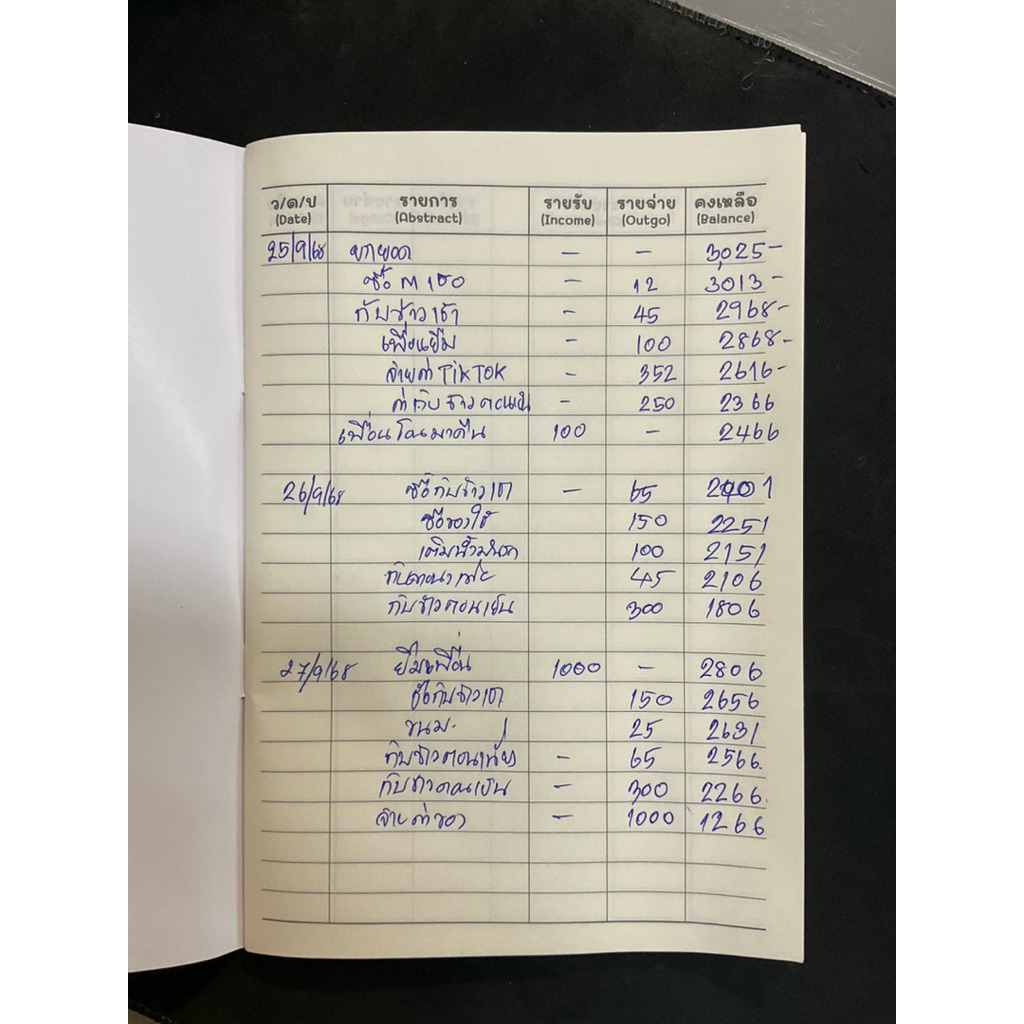 ว/ด/ป รายการ รายรับ รายจ่าย คงเหลือ
(Date) (Abstract) (Income) (Outgo) (Balance)
25/9/68 ยกยอด — — 3,025-
ซื้อ M 150 - 12 3,013-
กับข้าวเช้า - 45 2968-
เพื่อนยืม - 100 2868-
จ่ายค่า TikTok - 352 2616-
ค่ากับข้าวตอนเย็น - 250 2366
เพื่อนโอนมาคืน 100 - 2466
26/9/68 ซื้อกับข้าวเช้า - 65 2401
ซื้อของใช้ 150 2251
เติมน้ำมันรถ 100 2151
45 2106
กับข้าวตอนเย็น 300 1806
27/9/68 ยืมเพื่อน 1000 - 2806
ซื้อกับข้าวเช้า 150 2656
ขนม. 25 2631
กับข้าวตอนเที่ยง - 65 2566.
กับข้าวตอนเย็น - 300 2266.
จ่ายค่าของ - 1000 1266